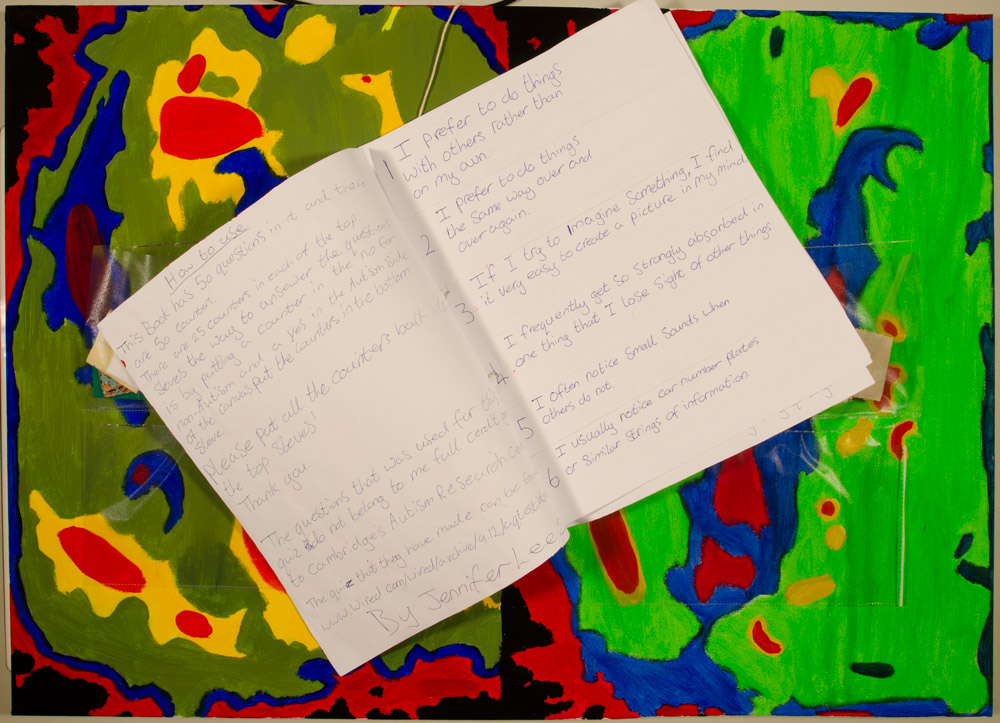 How to use
This Book has 50 questions in it and there
are 50 counters.
There are 25 counters in each of the top
Sleves the way to answer the question
is by putting a counter in the no for
non-Autism and a yes in the Autism side
of the canvas, put the counters in the bottom
Sleve
please put all the counters back in
the top Sleves!
Thank you
The questions that was used for this
quiz do not belong to me full credit
to Cambridge's Autism Research
The quiz that they have made can be
www.wired.com/wired/archive/9.12/aqtest.
By Jennifer Lee
1 I prefer to do things
with others rather than
on my own.
2 I prefer to do things
the same way over and
over again.
3 If I try to Imagine something, I find
it very easy to create a picture in my mind.
4 I frequently get so strongly absorbed in
one thing that I lose sight of other things.
5 I often notice small sounds when
others do not.
6 I usually notice car number plates
or similar strings of information.